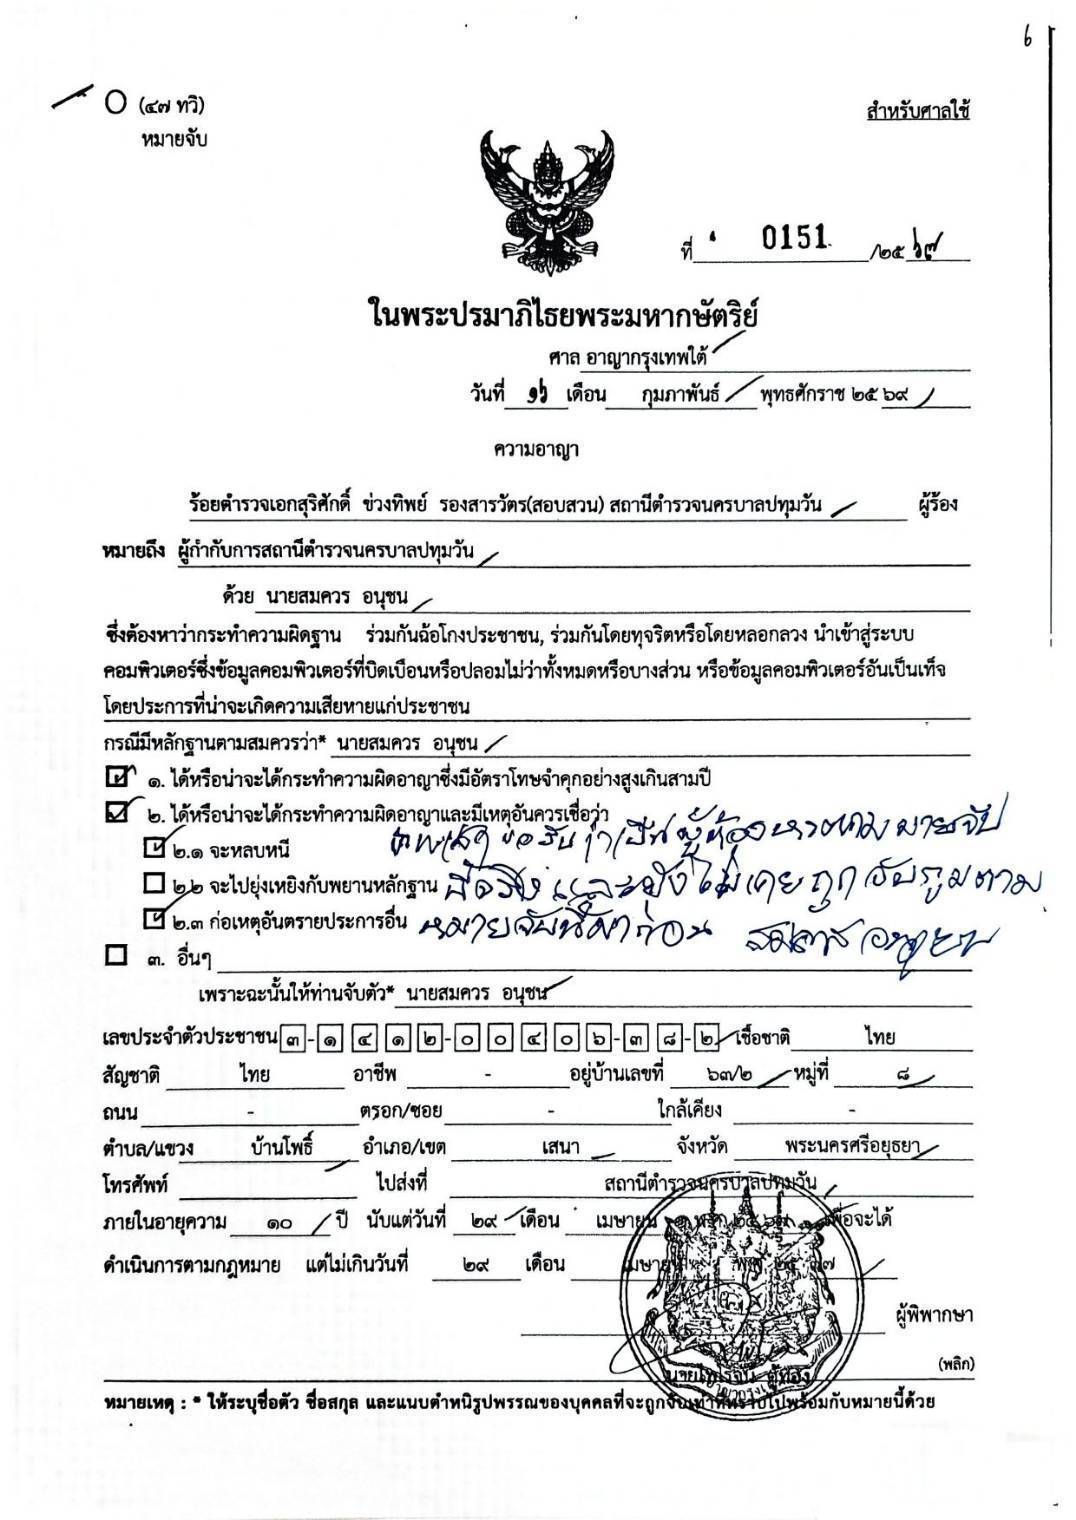 6
(๔๗ ทวิ)
สำหรับศาลใช้
หมายจับ
ที่ 0151 /๒๕ ๖๙
ในพระปรมาภิไธยพระมหากษัตริย์
ศาล อาญากรุงเทพใต้
วันที่ ๑๖ เดือน กุมภาพันธ์ พุทธศักราช ๒๕ ๖๙
ความอาญา
ร้อยตำรวจเอกสุริศักดิ์ ข่วงทิพย์ รองสารวัตร(สอบสวน) สถานีตำรวจนครบาลปทุมวัน ผู้ร้อง
หมายถึง ผู้กำกับการสถานีตำรวจนครบาลปทุมวัน
ด้วย นายสมควร อนุชน
ซึ่งต้องหาว่ากระทำความผิดฐาน ร่วมกันฉ้อโกงประชาชน, ร่วมกันโดยทุจริตหรือโดยหลอกลวง นำเข้าสู่ระบบ
คอมพิวเตอร์ซึ่งข้อมูลคอมพิวเตอร์ที่บิดเบือนหรือปลอมไม่ว่าทั้งหมดหรือบางส่วน หรือข้อมูลคอมพิวเตอร์อันเป็นเท็จ
โดยประการที่น่าจะเกิดความเสียหายแก่ประชาชน
กรณีมีหลักฐานตามสมควรว่า* นายสมควร อนุชน
๑. ได้หรือน่าจะได้กระทำความผิดอาญาซึ่งมีอัตราโทษจำคุกอย่างสูงเกินสามปี
๒. ได้หรือน่าจะได้กระทำความผิดอาญาและมีเหตุอันควรเชื่อว่า
๒.๑ จะหลบหนี ขอรับว่าเป็นผู้ต้องหาตามหมายจับ
๒.๒ จะไปยุ่งเหยิงกับพยานหลักฐาน นี้จริง และยังไม่เคยถูกจับกุมตาม
๒.๓ ก่อเหตุอันตรายประการอื่น หมายจับนี้มาก่อน
๓. อื่นๆ
เพราะฉะนั้นให้ท่านจับตัว* นายสมควร อนุชน
เลขประจำตัวประชาชน ๓-๑๔๑๒-๐๐๔๐๖-๓๘-๒ เชื้อชาติ ไทย
สัญชาติ ไทย อาชีพ - อยู่บ้านเลขที่ ๖๓/๒ หมู่ที่ ๘
ถนน - ตรอก/ซอย - ใกล้เคียง -
ตำบล/แขวง บ้านโพธิ์ อำเภอ/เขต เสนา จังหวัด พระนครศรีอยุธยา
โทรศัพท์ ไปส่งที่ สถานีตำรวจนครบาลปทุมวัน
ภายในอายุความ ๑๐ ปี นับแต่วันที่ ๒๙ เดือน เมษายน เพื่อจะได้
ดำเนินการตามกฎหมาย แต่ไม่เกินวันที่ ๒๙ เดือน เมษายน
ผู้พิพากษา
(พลิก)
หมายเหตุ : * ให้ระบุชื่อตัว ชื่อสกุล และแนบตำหนิรูปพรรณของบุคคลที่จะถูกจับเท่าที่ทราบไปพร้อมกับหมายนี้ด้วย